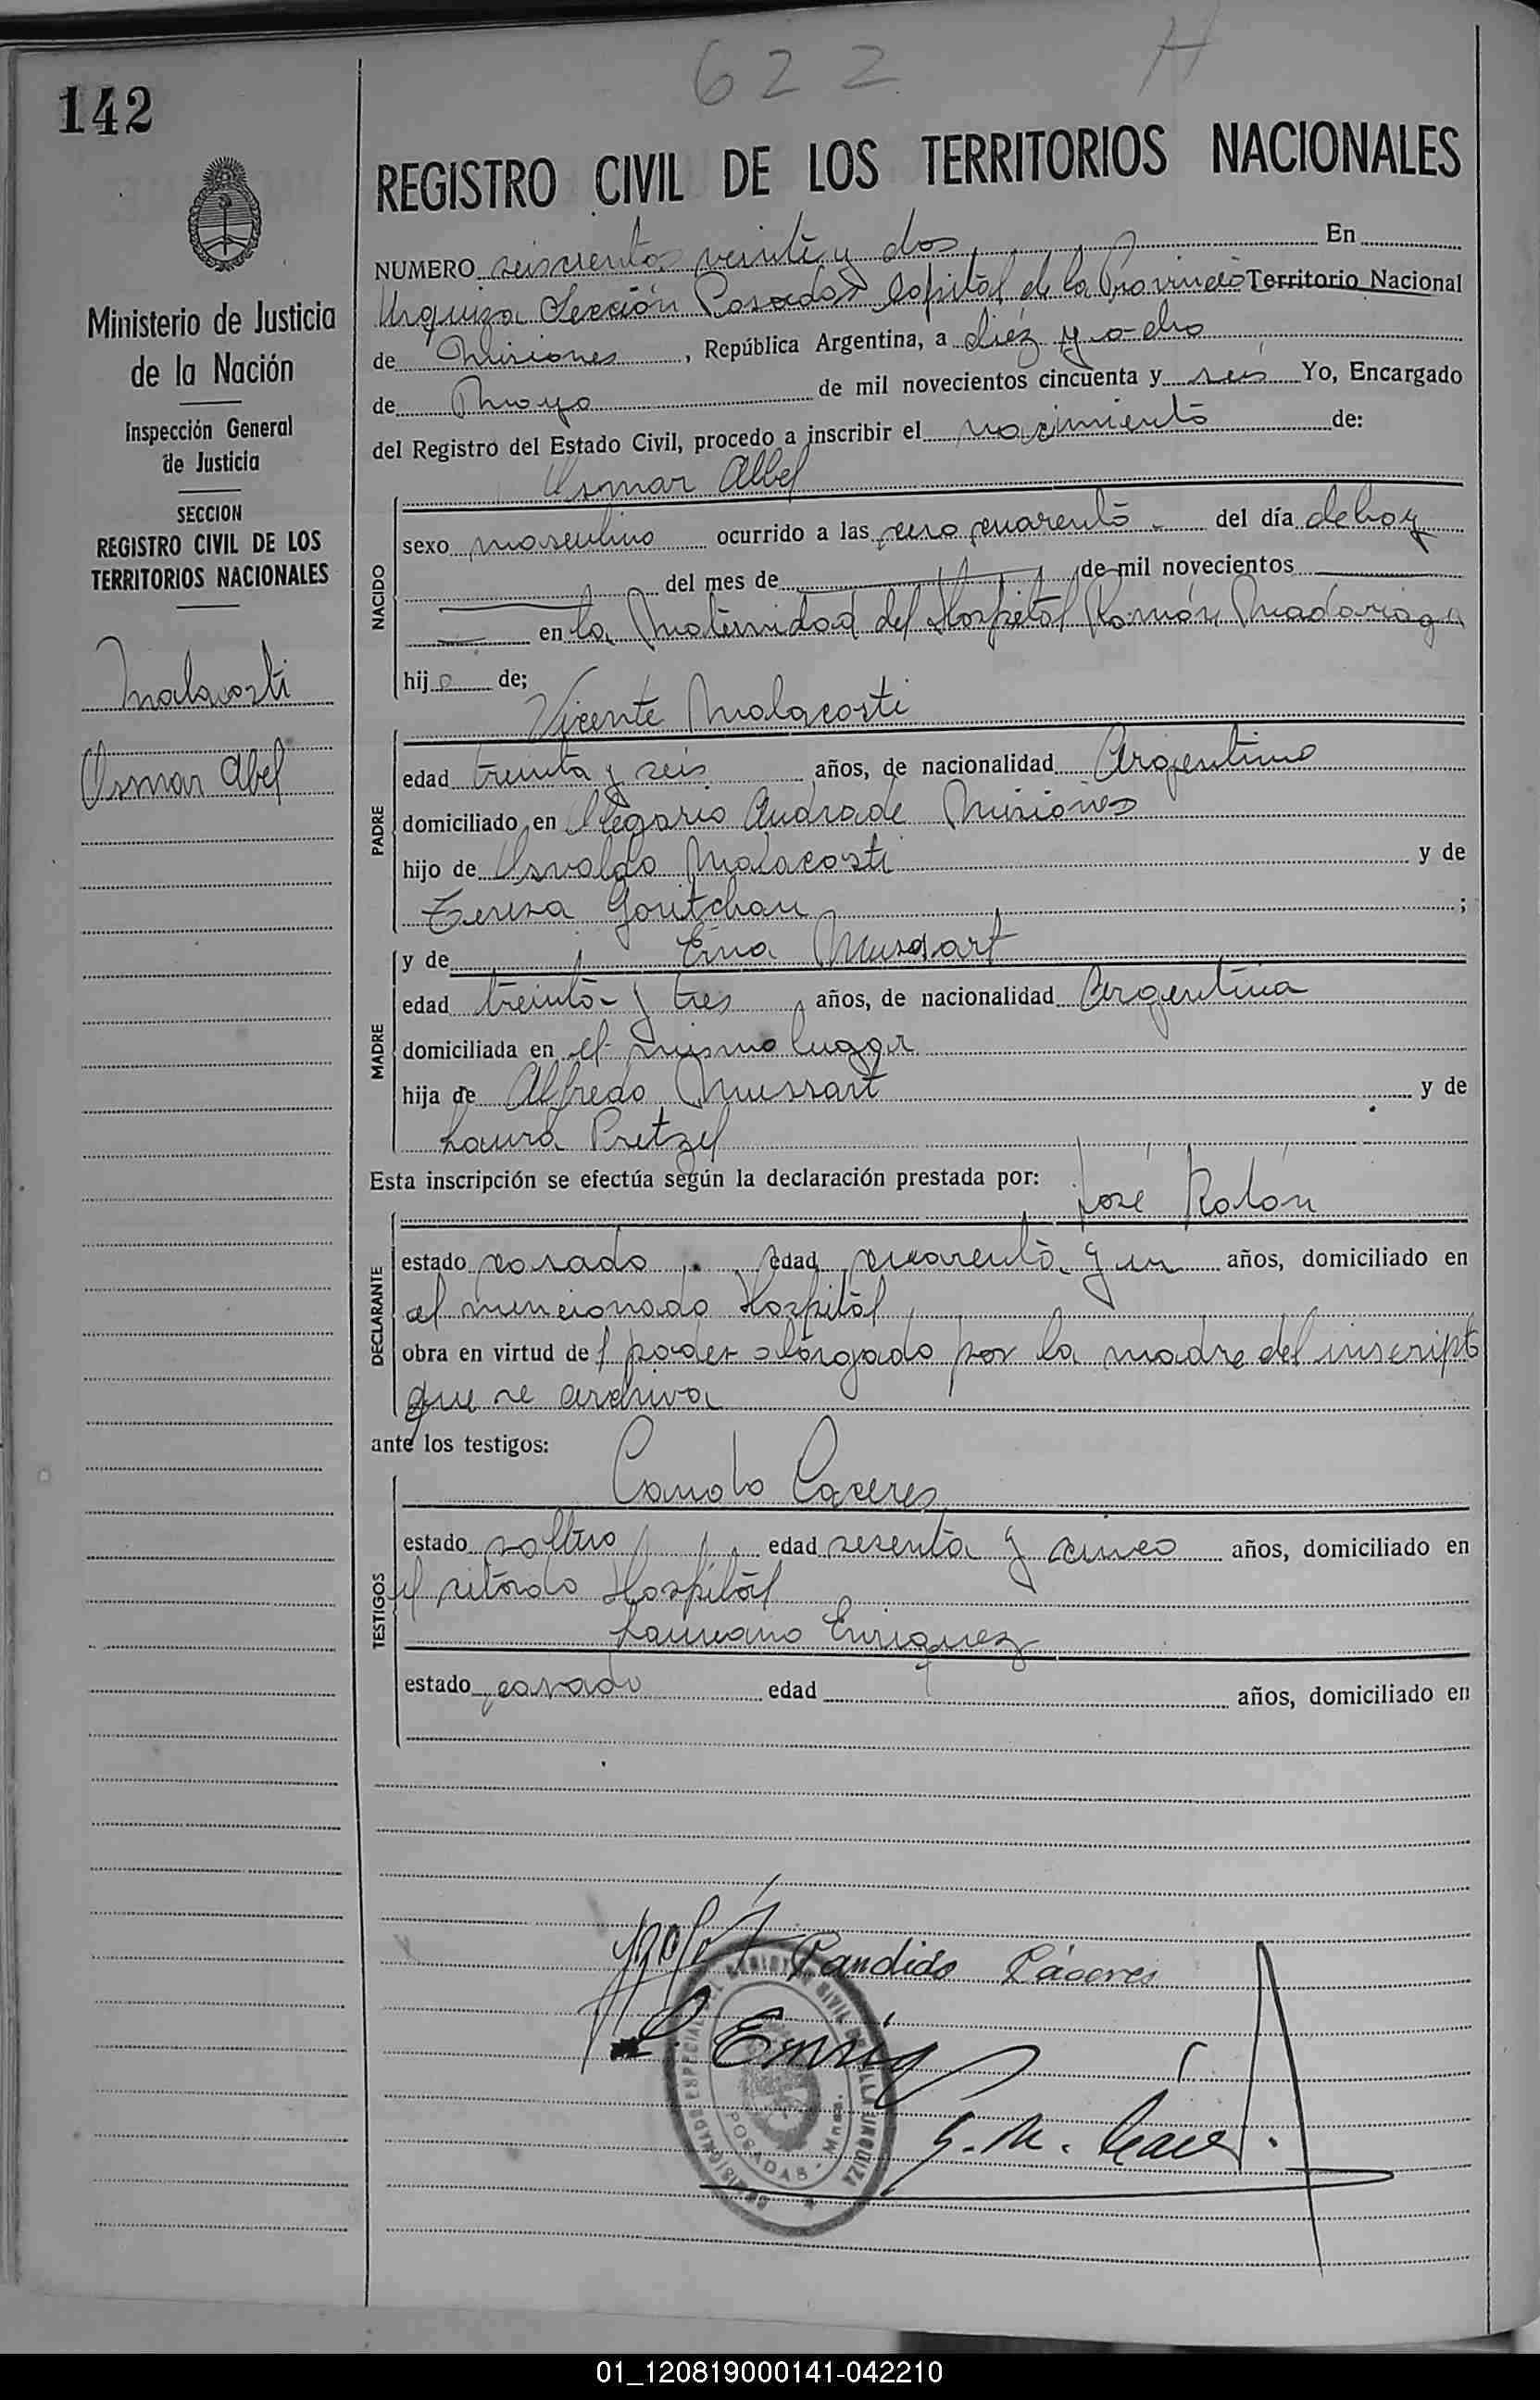 622 H
142
REGISTRO CIVIL DE LOS TERRITORIOS NACIONALES
NUMERO seiscientos veinte y dos En
Urquiza Sección Posadas Capital de la Provincia Territorio Nacional
de Misiones, República Argentina, a diéz y ocho
de Mayo de mil novecientos cincuenta y seis Yo, Encargado
del Registro del Estado Civil, procedo a inscribir el nacimiento de:
Ministerio de Justicia
de la Nación
Inspección General
de Justicia
SECCION
REGISTRO CIVIL DE LOS
TERRITORIOS NACIONALES
Malacosti
Osmar Abel
NACIDO
Osmar Abel
sexo masculino ocurrido a las cero cuarenta del día de hoy
del mes de de mil novecientos
en la Maternidad del Hospital Ramón Madariaga
hijo de;
PADRE
Vicente Malacosti
edad treinta y seis años, de nacionalidad Argentino
domiciliado en Olegario Andrade Misiones
hijo de Osvaldo Malacosti y de
Teresa Goritchau ;
MADRE
y de Ema Mussart
edad treinta y tres años, de nacionalidad Argentina
domiciliada en el mismo lugar
hija de Alfredo Mussart y de
Laura Pretzel
Esta inscripción se efectúa según la declaración prestada por: José Rolón
DECLARANTE
estado casado edad cuarenta y un años, domiciliado en
el mencionado Hospital
obra en virtud del poder otorgado por la madre del inscripto
que se archiva
ante los testigos:
TESTIGOS
Caceres
estado soltero edad sesenta y cinco años, domiciliado en
el citado Hospital
Laureano Enriquez
estado casado edad años, domiciliado en
Candido Cáceres
L. Enriq
POSADAS - Mnes.
01_120819000141-042210